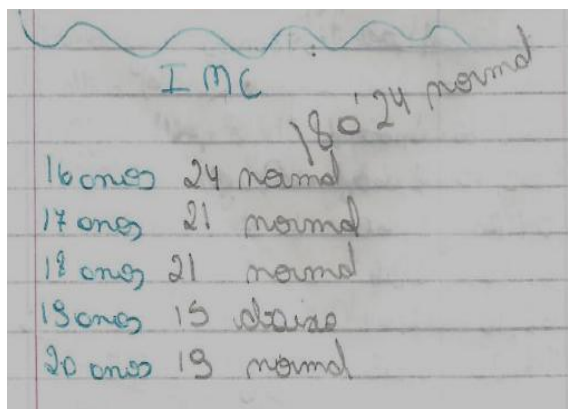 IMC
18 a 24 normal
16 anos 24 normal
17 anos 21 normal
18 anos 21 normal
19 anos 15 abaixo
20 anos 19 normal